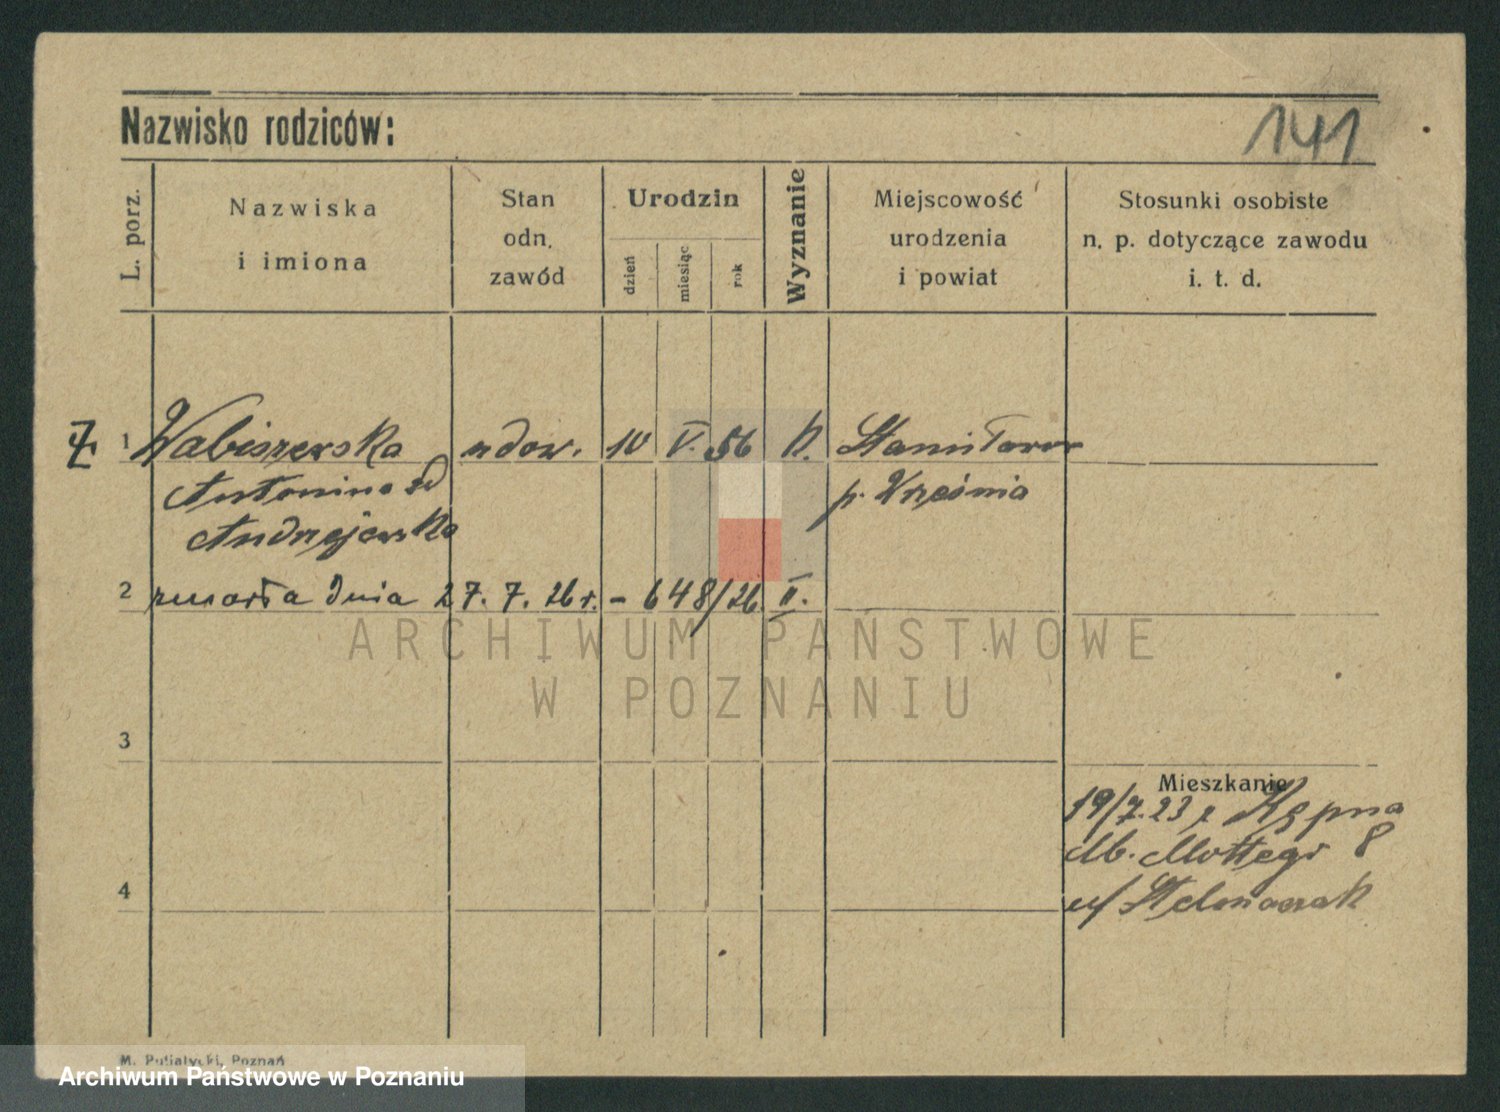 Nazwisko rodziców:
141
L. porz.
Nazwiska
i imiona
Stan
odn.
zawód
Urodzin
dzień
miesiąc
rok
Wyznanie
Miejscowość
urodzenia
i powiat
Stosunki osobiste
n. p. dotyczące zawodu
i. t. d.
1 Wabiszewska udow. 10 V. 56 k.
Antonina
p. Września
Andrzejewska
2 zmarła dnia 27. 7. 26 r. - 648/26 II.
ARCHIWUM PAŃSTWOWE
W POZNANIU
3
Mieszkanie
19/7.23 z Kępna
8
4
M. Putiatycki, Poznań
Archiwum Państwowe w Poznaniu